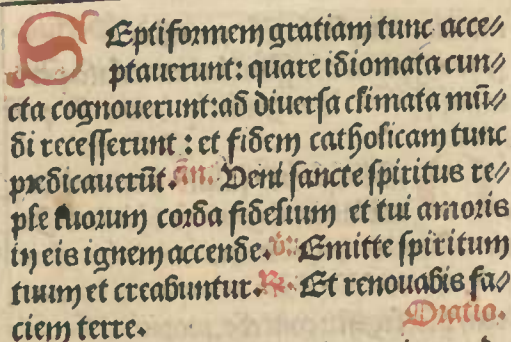 SEptiformem gratiam tunc acce⸗
ptauerunt: quare idiomata cun⸗
cta cognouerunt: ad diuerſa climata mū⸗
di receſſerunt : et fidem catholicam tunc
predicauerūt. añ. Veni ſancte ſpiritus re⸗
ple tuorum corda fidelium et tui amoris
in eis ignem accende. v̄: Emitte ſpiritum
tuum et creabuntur. R̄. Et renouabis fa⸗
ciem terre.
Oratio.